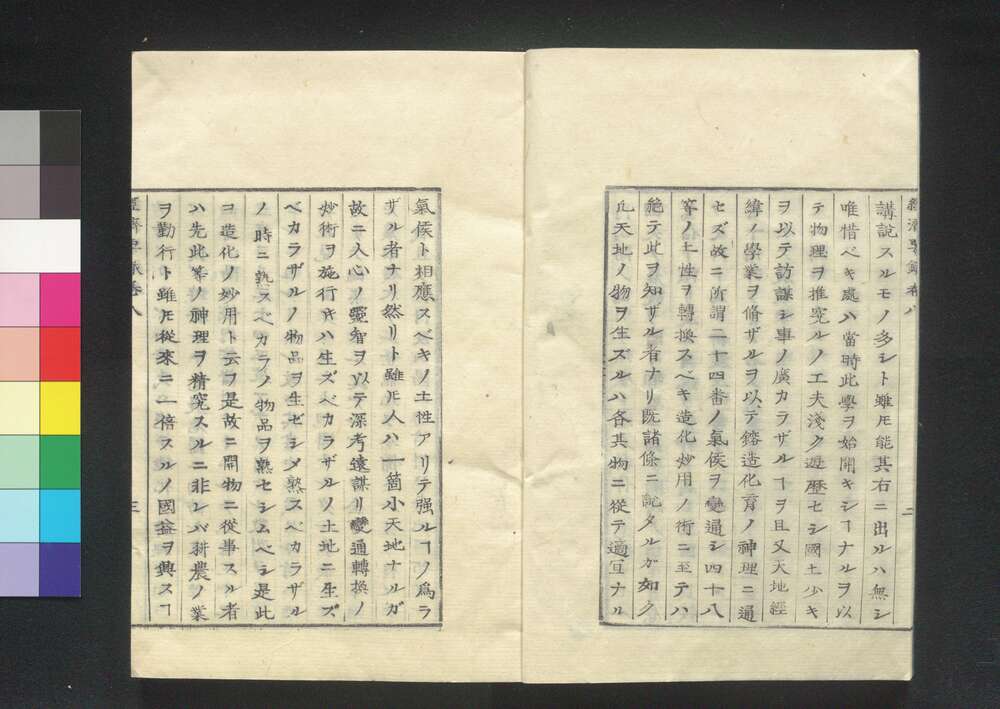 經濟要錄卷八
二
講說スルモノ多シト雖𪜈能其右ニ出ルハ無シ
唯惜ベキ處ハ當時此學ヲ始開キシヿナルヲ以
テ物理ヲ推究ルノ工夫淺ク遊歷セシ國土少キ
ヲ以テ訪謀シ事ノ廣カラザルヿヲ且又天地經
緯ノ學業ヲ脩ザルヲ以テ鎔造化育ノ神理ニ通
セズ故ニ所謂二十四番ノ氣候ヲ變通シ四十八
等ノ土性ヲ轉換スベキ造化妙用ノ術ニ至テハ
絶テ此ヲ知ザル者ナリ既諸條ニ說タルガ如ク
凡天地ノ物ヲ生ズルハ各其物ニ從テ適宜ナル
氣候ト相應スベキノ土性アリテ强ルヿノ爲ラ
ザル者ナリ然リト雖𪜈人ハ一箇小天地ナルガ
故ニ人心ノ靈智ヲ以テ深考遠謀リ變通轉換ノ
妙術ヲ施行キハ生ズベカラザルノ土地ニ生ズ
ベカラザルノ物品ヲ生ゼシメ熟スベカラザル
ノ時ニ熟スベカラノ物品ヲ熟セシムベシ是此
コ造化ノ妙用ト云フ是故ニ開物ニ從事スル者
ハ先此等ノ神理ヲ精究スルニ非レバ耕農ノ業
ヲ勤行ト雖𪜈從來ニ一倍スルノ國益ヲ興スヿ
經濟要錄卷八
三